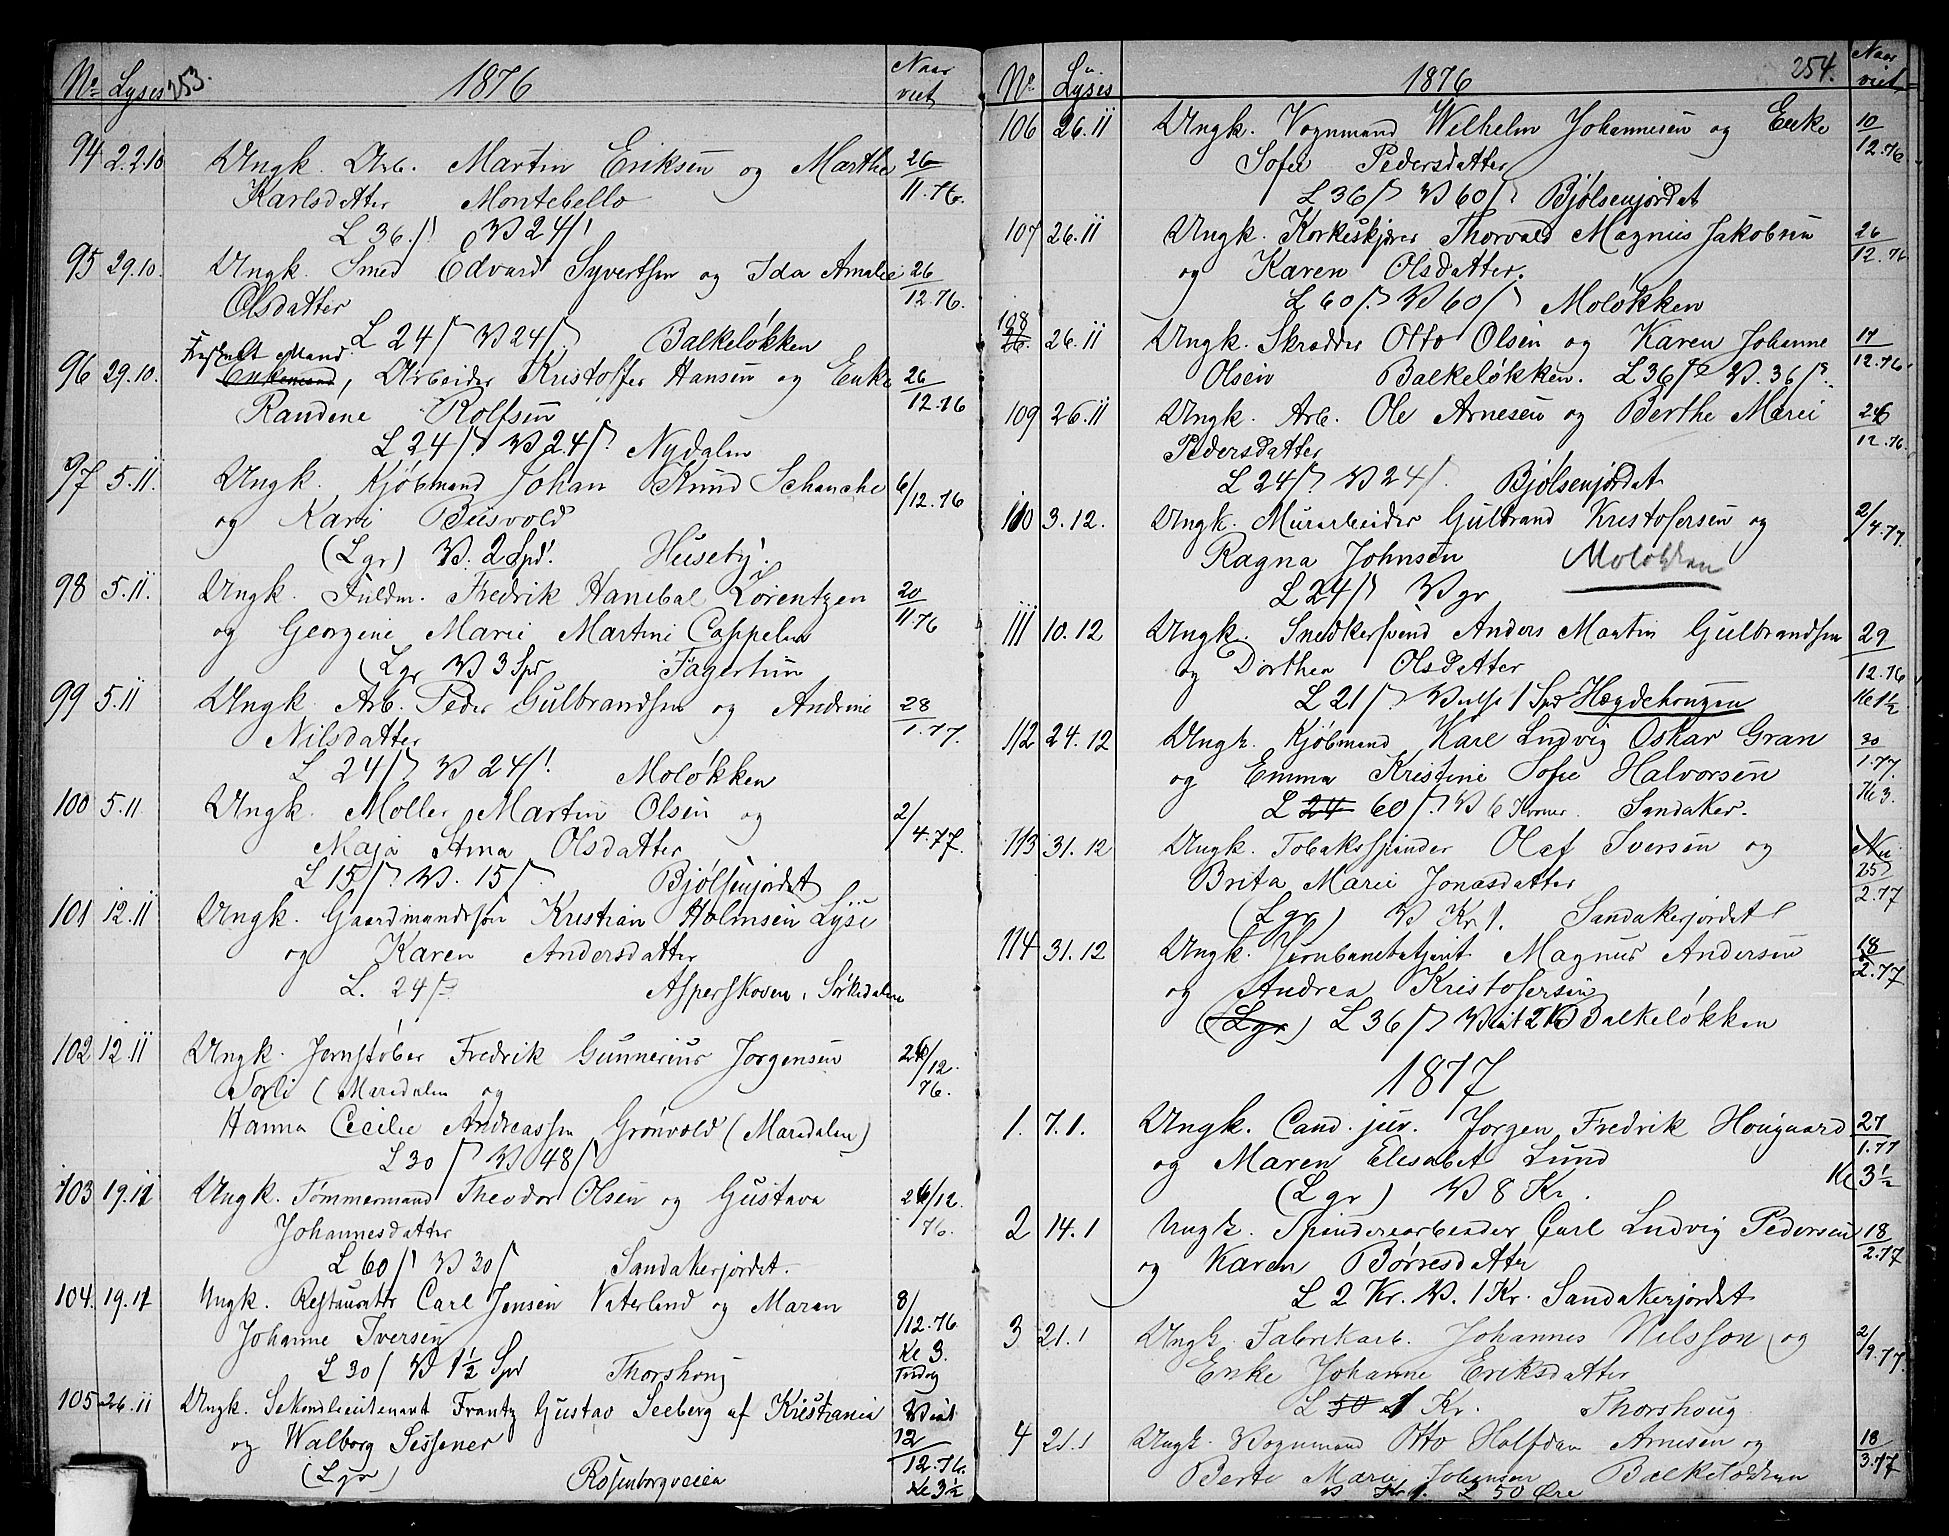 No Lyses 253. 1876 Naar viet
94 22.10 Ungk. Arb. Martin Eriksen og Marthe 26/11.76.
Karlsdatter Montebello
L 36 ß V 24 ß
95 29.10. Ungk. Smed Edvard Syvertsen og Ida Amalie 26/12.76.
Olsdatter
L 24 ß V 24 ß. Balkeløkken
Fraskilt Mand
96 29.10. Enkemand, Arbeider Kristoffer Hansen og Enke 26/12.76
Randine Rolfsen
L 24 ß V 24 ß. Nydalen
97 5.11. Ungk. Kjöbmand Johan Knud Schanche 6/12.76
og Kari Busvold
(Lgr) V. 2 Spd. Huseby.
98 5.11. Ungk. Fuldm. Fredrik Hanibal Lorentzen 20/11.76
og Georgine Marie Martine Cappelen
(Lgr V 3 Spd Fagertun
99 5.11 Ungk. Arb. Peder Gulbrandsen og Andrine 28/1.77.
Nilsdatter
L 24 ß V 24 ß. Moløkken
100 5.11 Ungk. Møller Martin Olsen og 2/4.77.
Maja Stina Olsdatter
L 15 ß. V. 15 ß. Bjølsenjordet
101 12.11 Ungk. Gaardmandssøn Kristian Holmsen Lyse
og Karen Andersdatter
L. 24 ß Asperskoven, Sörkedalen
102 12.11 Ungk. Jernstøber Fredrik Gunnerius Jorgensen 26/12.76.
Torli (Maridalen og
Hanna Cecilie Andreassen Grönvold (Maridalen)
L 30 ß V 48 ß
103 19.11 Ungk. Tömmermand Theodor Olsen og Gustava 26/12.76.
Johannesdatter
L 60 ß V 30 ß Sandakerjordet.
104. 19.11 Ungk. Restauratör Carl Jensen Vaterland og Maren 8/12.76
Johanne Iversen Kl 3.
L 30 ß V 1½ Spd Thorshoug Fredag
105 26.11 Ungk. Sekondlieutenant Frantz Gustav Seeberg af Kristiania Viet
og Walborg Sissener 12/12.76.
(Lgr) Rosenborgveien Kl 3½
No. Lyses 1876 254. Naar viet
106 26.11 Ungk. Vognmand Wilhelm Johannesen og Enke 10/12.76.
Sofie Pedersdatter
L 36 ß V 60 ß Bjølsenjordet
107 26.11 Ungk. Korkeskjærer Thorvald Magnus Jakobsen 26/12.76
og Karen Olsdatter.
L 60 ß. V 60 ß Moløkken
108 26.11 Ungk. Skrædder Otto Olsen og Karen Johanne 17/12.76.
Olsen Balkeløkken. L 36 ß V. 36 ß.
109 26.11 Ungk. Arb. Ole Arnesen og Berthe Marie 26/12.76.
Pedersdatter
L 24 ß. V 24 ß. Bjølsenjordet
110 3.12. Ungk. Murarbeider Gulbrand Kristofersen og 2/4.77.
Ragna Johnsen Moløkken
L 24 ß V gr
111 10.12 Ungk. Snedkersvend Anders Martin Gulbrandsen 29/12.76
og Dorthea Olsdatter Kl 1½
L 21 ß. Vielse 1 Spd Hægdehougen
112 24.12 Ungk. Kjöbmand Karl Ludvig Oskar Gran 30/1.77.
og Emma Kristine Sofie Halvorsen Kl 3.
L 24 60 ß. V 6 Kroner. Sandaker.
113 31.12 Ungk. Tobaksspinder Olaf Iversen og 25/2.77
Brita Marie Jonasdatter
(Lgr) V Kr 1. Sandakerjordet
114 31.12 Ungk. Jernbanebetjent Magnus Andersen 18/2.77
og Andrea Kristofersen
(Lgr) L 36 ß Viet 2 Kr Balkeløkken
1877
1. 7.1. Ungk. Cand. jur. Jorgen Fredrik Hougaard 27/1.77
og Maren Elisabet Lund Kl 3½
(Lgr) V 8 Kr.
2 14.1 Ungk. Spinderearbeider Carl Ludvig Pedersen 18/2.77
og Karen Børresdatter
L 2 Kr. V. 1 Kr. Sandakerjordet
3 21.1 Ungk. Fabrikarb. Johannes Nilsson og 2/9.77.
Enke Johanne Eriksdatter
L 50 1 Kr. Thorshoug
4 21.1 Ungk. Vognmand Otto Halfdan Arnesen og 18/3.77
Berte Marie Johansen Balkeløkken
V Kr 1. L 50 Øre